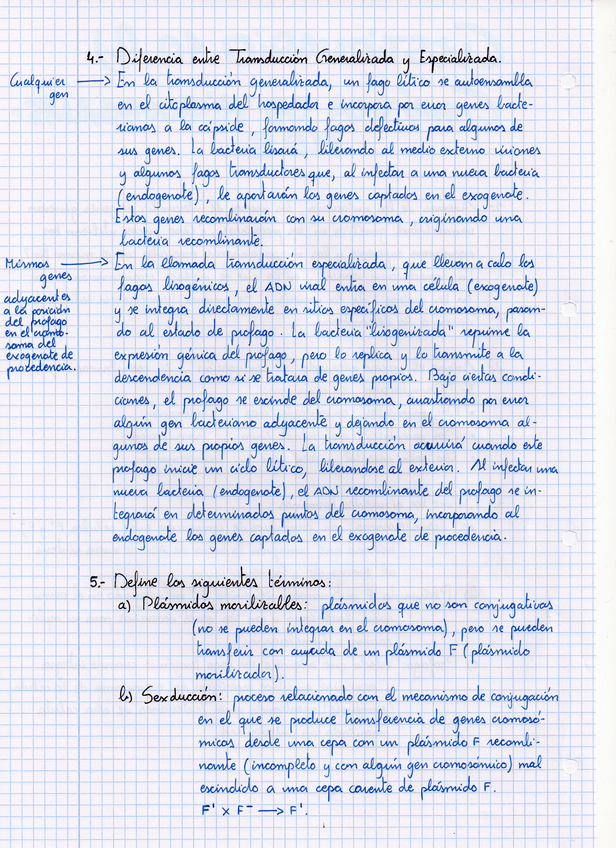 4.- Diferencia entre Transducción Generalizada y Especializada.
Cualquier gen
En la transducción generalizada, un fago lítico se autoensambla
en el citoplasma del hospedador e incorpora por error genes bacte-
rianos a la cápside, formando fagos defectivos para algunos de
sus genes. La bacteria lisará, liberando al medio externo viriones
y algunos fagos transductores que, al infectar a una nueva bacteria
(endogenote), le aportarán los genes captados en el exogenote.
Estos genes recombinarán con su cromosoma, originando una
bacteria recombinante.
Mismos
genes
adyacentes
a la posición
del profago
en el cromo-
soma del
exogenote de
procedencia.
En la llamada transducción especializada, que llevan a cabo los
fagos lisogénicos, el ADN viral entra en una célula (exogenote)
y se integra directamente en sitios específicos del cromosoma, pasan-
do al estado de profago. La bacteria "lisogenizada" reprime la
expresión génica del profago, pero lo replica y lo transmite a la
descendencia como si se tratara de genes propios. Bajo ciertas condi-
ciones, el profago se escinde del cromosoma, arrastrando por error
algún gen bacteriano adyacente y dejando en el cromosoma al-
gunos de sus propios genes. La transducción ocurrirá cuando este
profago inicie un ciclo lítico, liberandose al exterior. Al infectar una
nueva bacteria (endogenote), el ADN recombinante del profago se in-
tegrará en determinados puntos del cromosoma, incorporando al
endogenote los genes captados en el exogenote de procedencia.
5.- Define los siguientes términos:
a) Plásmidos movilizables: plásmidos que no son conjugativos
(no se pueden integrar en el cromosoma), pero se pueden
transferir con ayuda de un plásmido F (plásmido
movilizador).
b) Sexducción: proceso relacionado con el mecanismo de conjugación
en el que se produce transferencia de genes cromosó-
micos desde una cepa con un plásmido F recombi-
nante (incompleto y con algún gen cromosómico) mal
escindido a una cepa carente de plásmido F.
F' x F⁻ → F'.